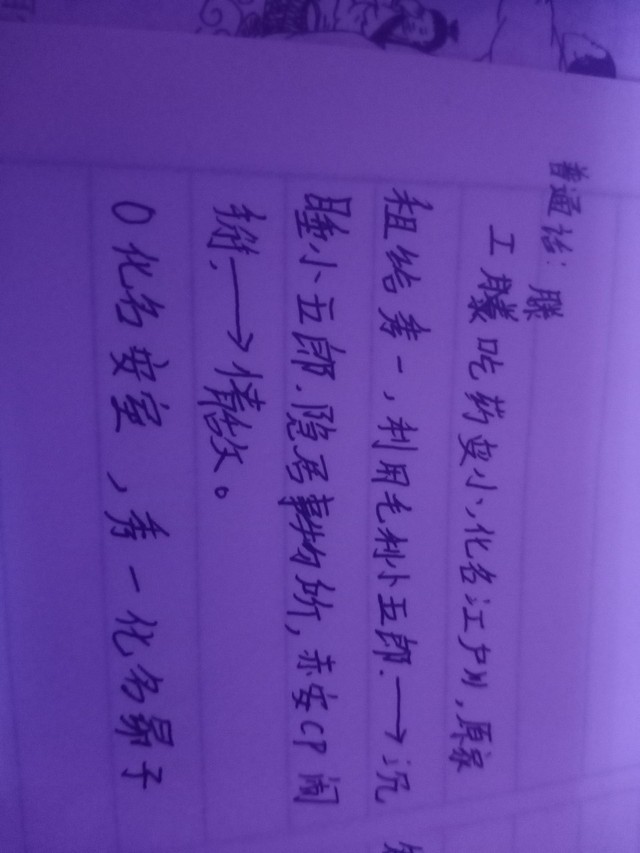 普通话：
滕
工滕吃药变小，化名江户川，原家
租给秀一，利用毛利小五郎.→沉
睡小五郎.隐居事物所，赤安CP闹
掰.→情敌。
0化名安室，秀一化名昴子